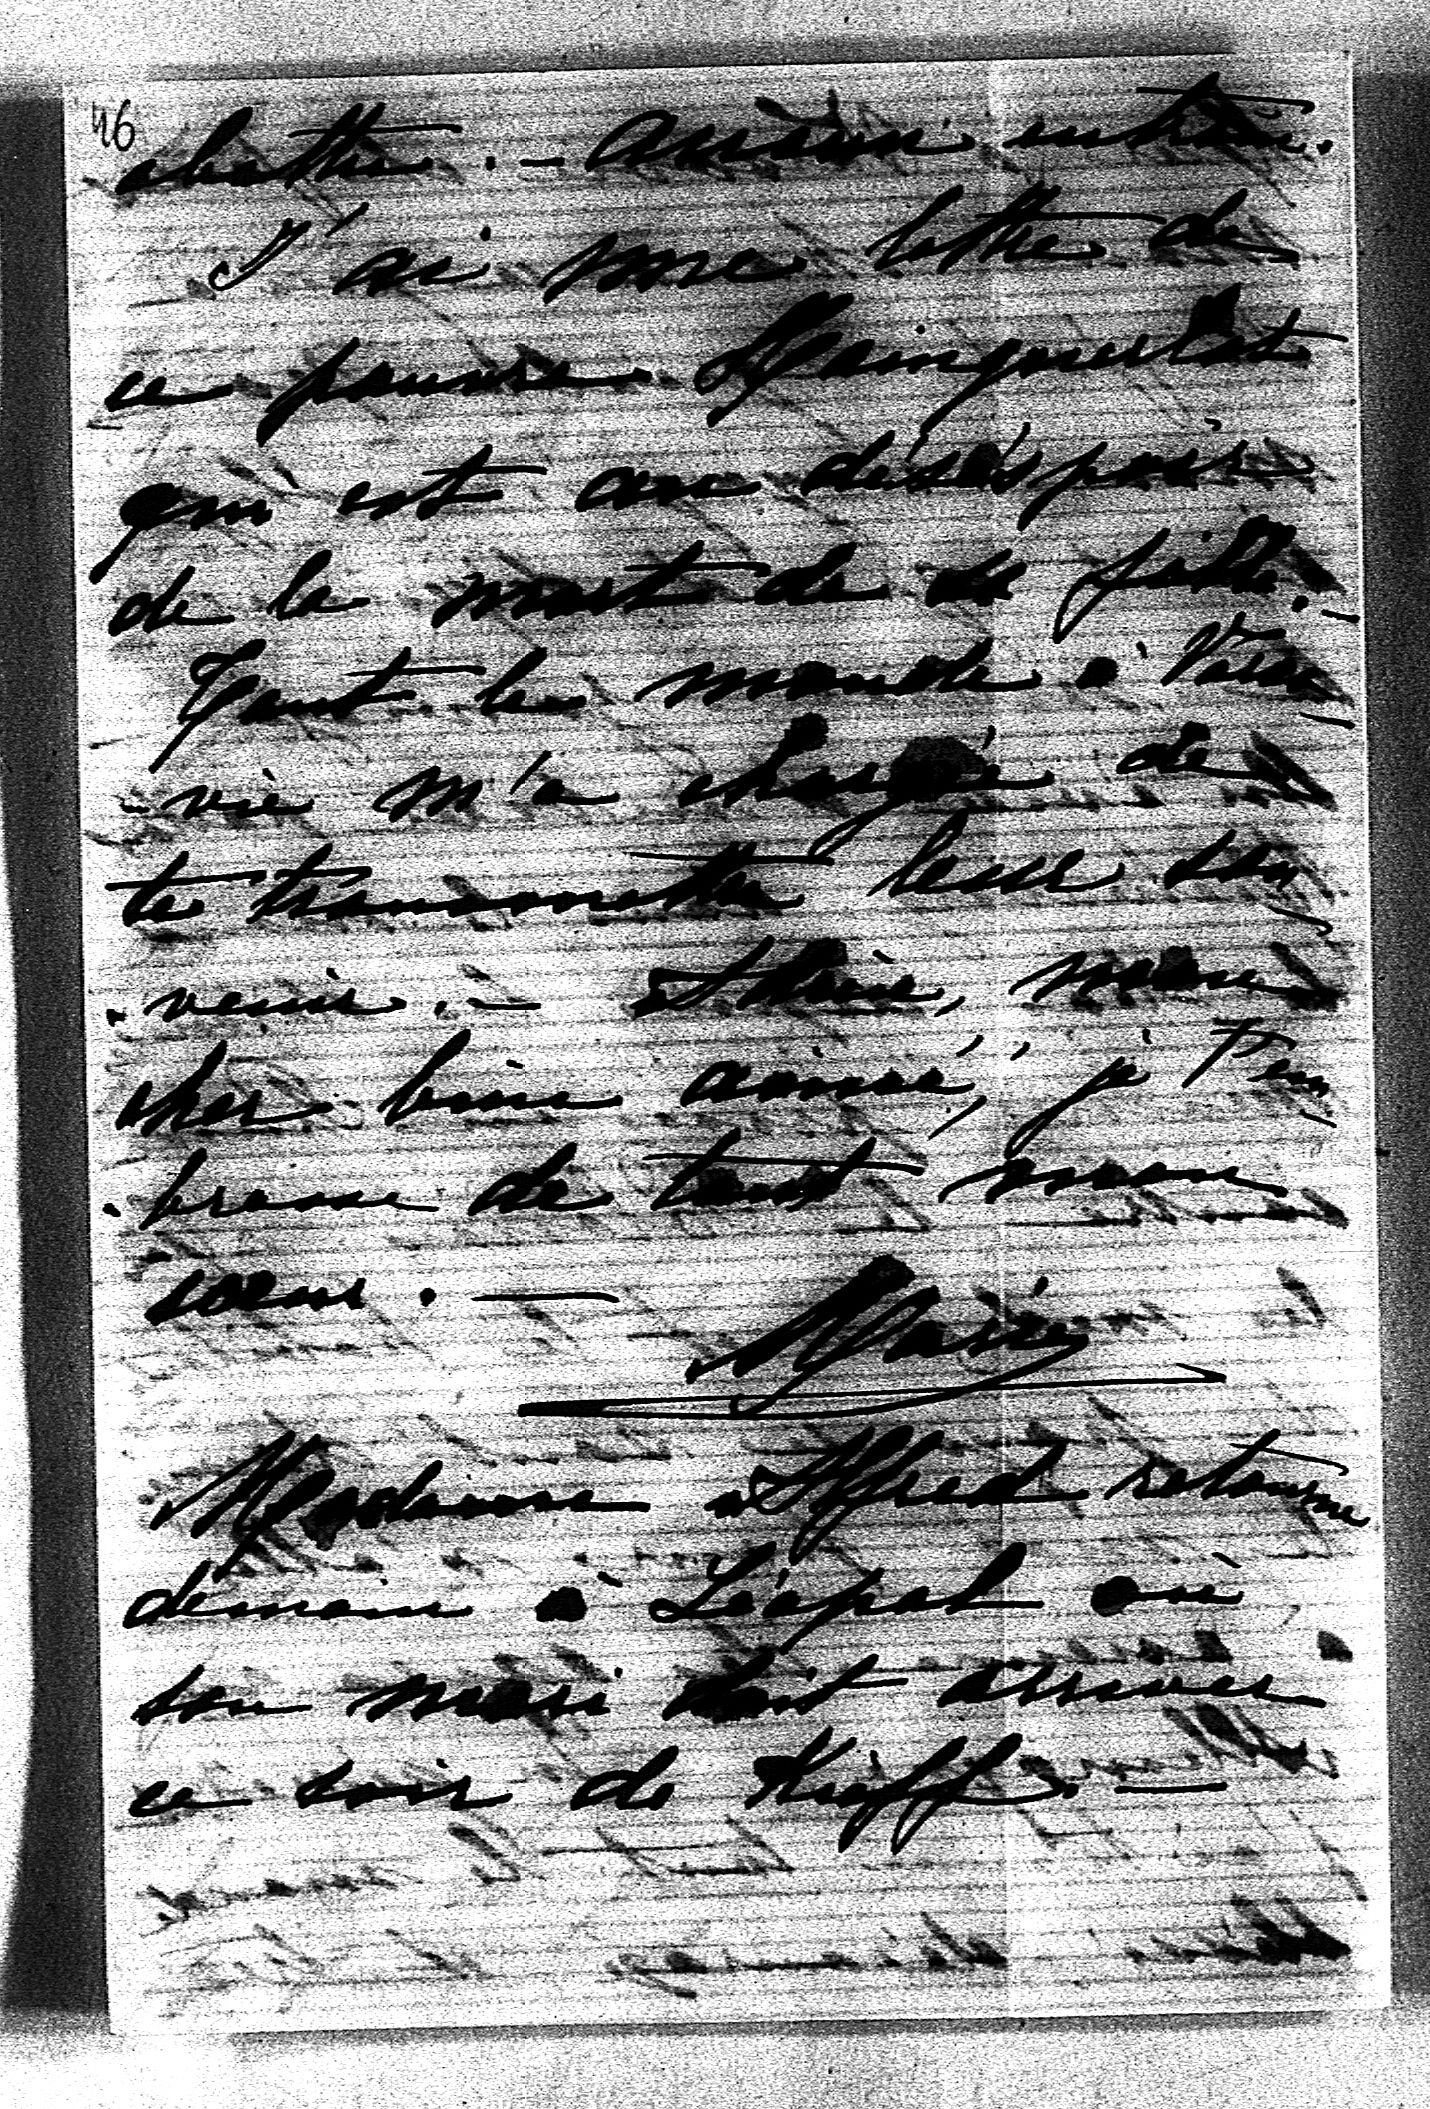 46
abattre. — Aucun entrain.
J'ai une lettre de
ce pauvre
qui est au désespoir
de la mort de sa fille. —
Tout le monde à Varso-
-vie m'a chargée de
te transmettre leur sou-
-venir. — Adieu, mon
cher bien aimé, je t'em-
-brasse de tout mon
coeur. —
Marie
Madame Alfred retourne
demain à Léopol où
son mari doit arriver
ce soir de Kieff. —